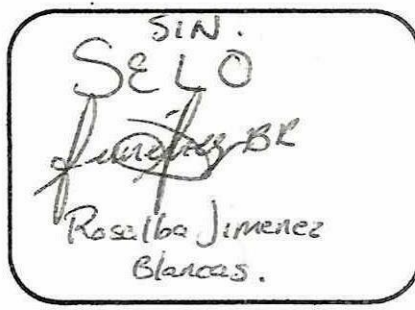 SIN.
SELO
Jimenez BR
Rosalba Jimenez
Blancas.